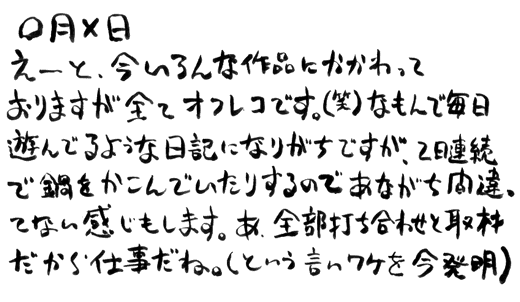 〇月×日
えーと、今いろんな作品にかかわって
おりますが全てオフレコです。(笑)なもんで毎日
遊んでるような日記になりがちですが、2日連続
で鍋をかこんでいたりするのであながち間違っ
てない感じもします。あ、全部打ち合わせと取材
だから仕事だね。(という言いワケを今発明)